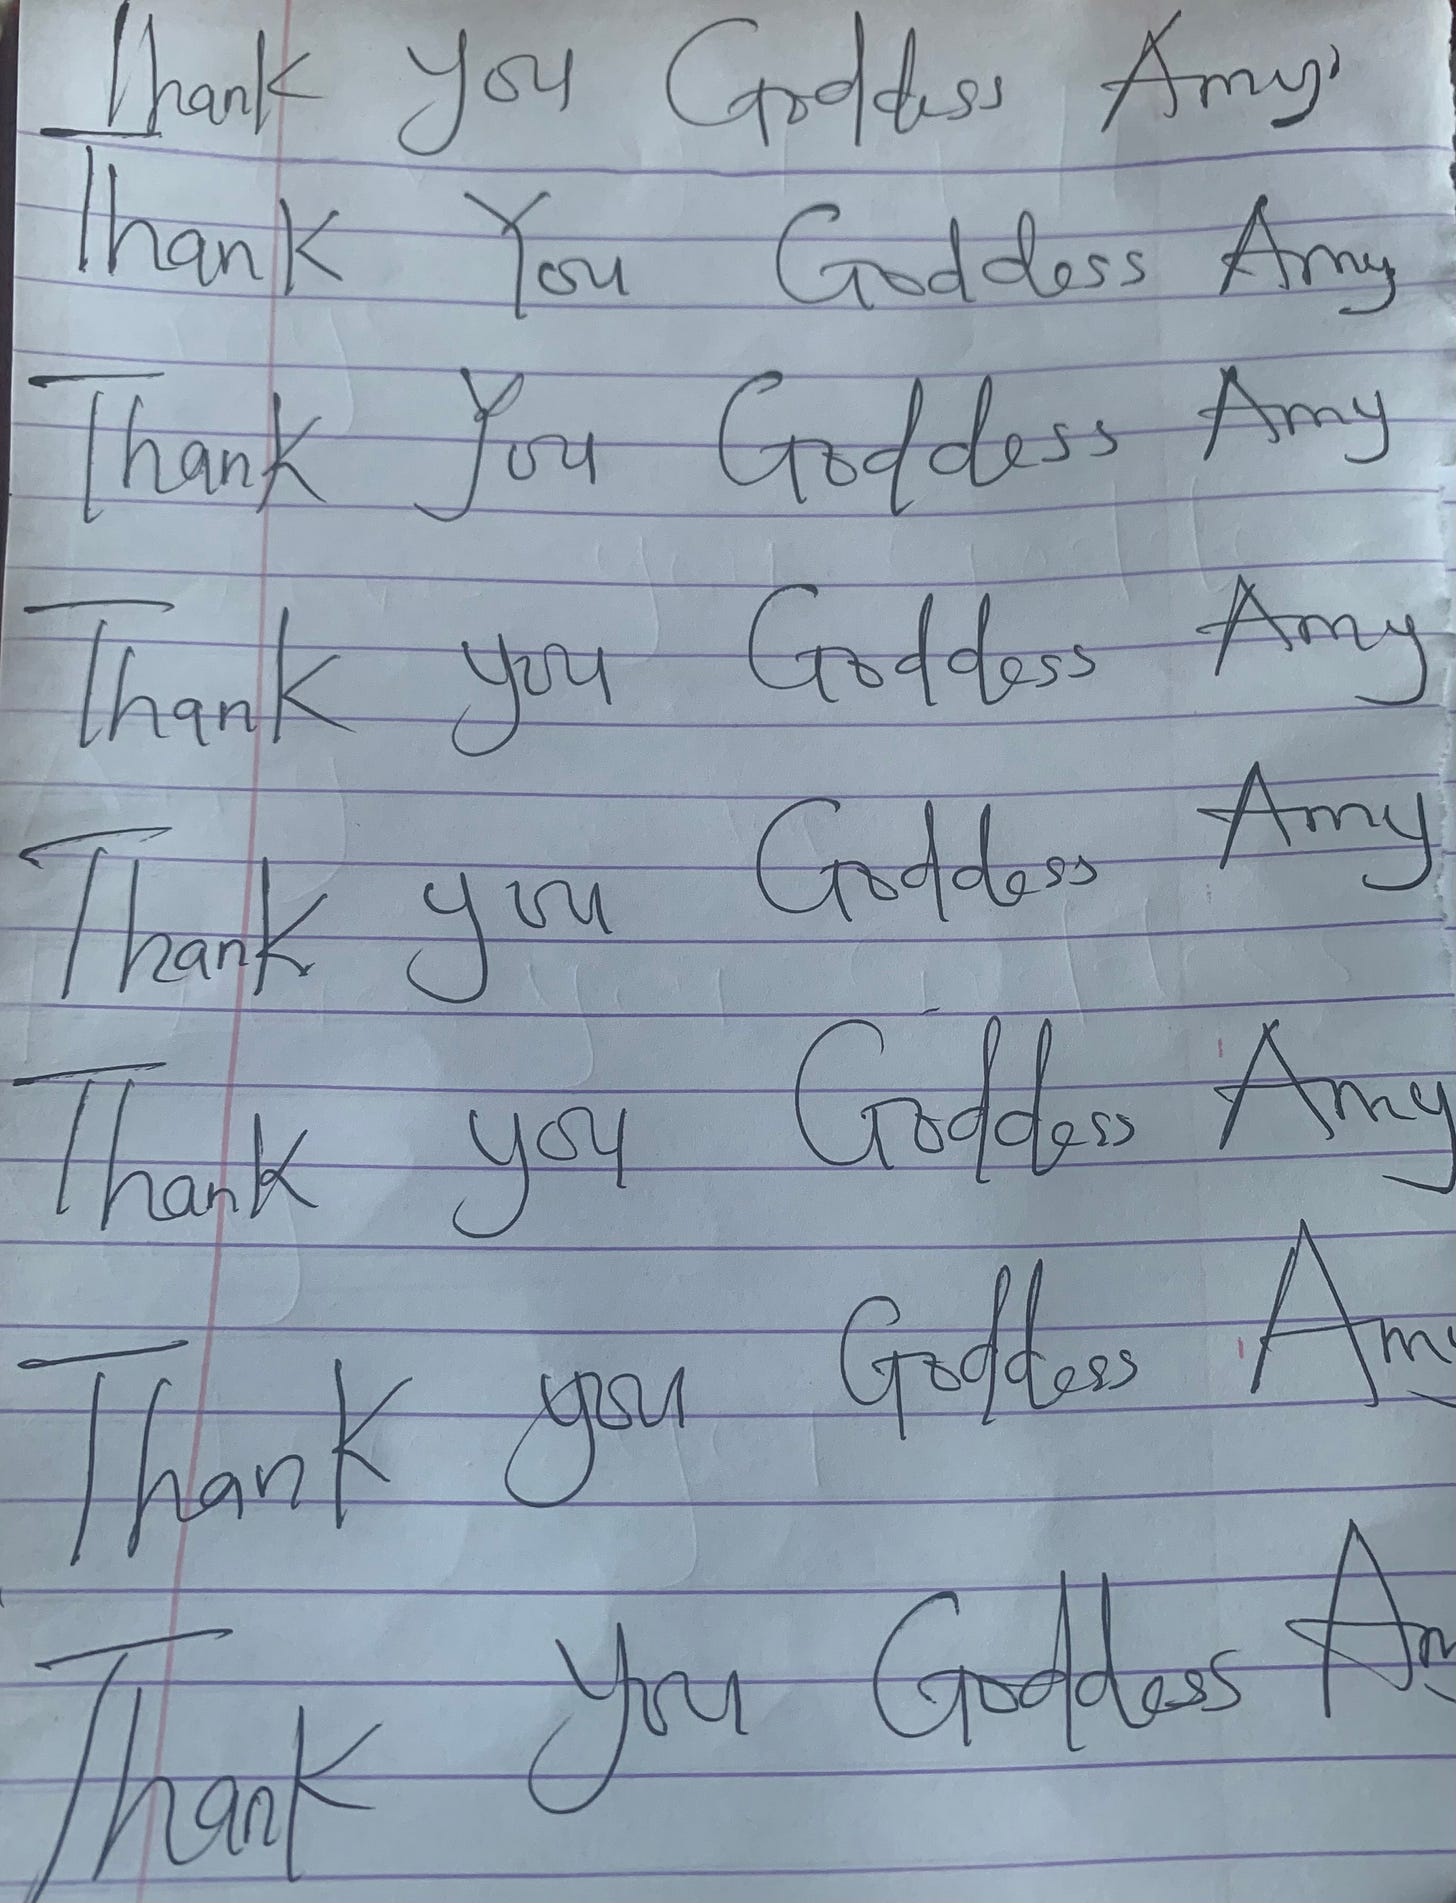 Thank you Goddess Amy
Thank You Goddess Amy
Thank You Goddess Amy
Thank you Goddess Amy
Thank you Goddess Amy
Thank you Goddess Amy
Thank you Goddess Am
Thank you Goddess Am